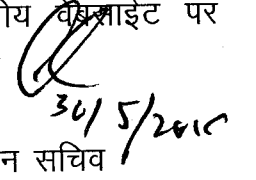 ीय वेबसाईट पर
30/5/201
न सचिव